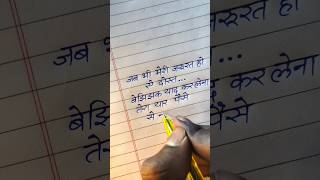 जब भी मेरी जरूरत हो
ऐ दोस्त...
बेझिझक याद कर लेना
तेरा यार पैसे
से